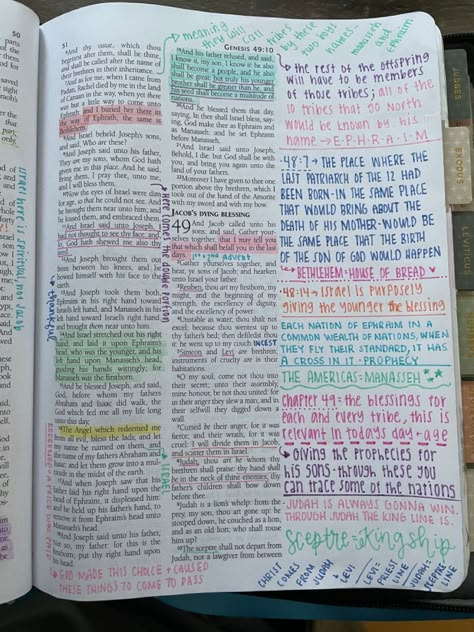 51
GENESIS 49:10
meaning they will call tribes by these two boys names. manasseh and Ephraim
6And thy issue, which thou
begettest after them, shall be thine,
and shall be called after the name of
their brethren in their inheritance.
7And as for me, when I came from
Padan, Rachel died by me in the land
of Canaan in the way, when yet there
was but a little way to come unto
Ephrath: and I buried her there in
the way of Ephrath; the same is
Bethlehem.
8And Israel beheld Joseph's sons,
and said, Who are these?
9And Joseph said unto his father,
They are my sons, whom God hath
given me in this place. And he said,
Bring them, I pray thee, unto me,
and I will bless them.
10Now the eyes of Israel were dim
for age, so that he could not see. And
he brought them near unto him; and
he kissed them, and embraced them.
11And Israel said unto Joseph, I
had not thought to see thy face: and,
lo, God hath shewed me also thy
seed.
12And Joseph brought them out
from between his knees, and he
bowed himself with his face to the
earth.
13And Joseph took them both,
Ephraim in his right hand toward
Israel's left hand, and Manasseh in his
left hand toward Israel's right hand,
and brought them near unto him.
14And Israel stretched out his right
hand, and laid it upon Ephraim's
head, who was the younger, and his
left hand upon Manasseh's head,
guiding his hands wittingly; for
Manasseh was the firstborn.
15And he blessed Joseph, and said,
God, before whom my fathers
Abraham and Isaac did walk, the
God which fed me all my life long
unto this day,
16The Angel which redeemed me
from all evil, bless the lads; and let
my name be named on them, and
the name of my fathers Abraham and
Isaac; and let them grow into a multitude
in the midst of the earth.
17And when Joseph saw that his
father laid his right hand upon the
head of Ephraim, it displeased him:
and he held up his father's hand, to
remove it from Ephraim's head unto
Manasseh's head.
18And Joseph said unto his father,
Not so, my father: for this is the
firstborn; put thy right hand upon
his head.
19And his father refused, and said,
I know it, my son, I know it: he also
shall become a people, and he also
shall be great: but truly his younger
brother shall be greater than he, and
his seed shall become a multitude of
nations.
20And he blessed them that day,
saying, In thee shall Israel bless, saying,
God make thee as Ephraim and
as Manasseh: and he set Ephraim
before Manasseh.
21And Israel said unto Joseph,
Behold, I die: but God shall be with
you, and bring you again unto the
land of your fathers.
22Moreover I have given to thee one
portion above thy brethren, which I
took out of the hand of the Amorite
with my sword and with my bow.
JACOB'S DYING BLESSING
49 And Jacob called unto his
sons, and said, Gather yourselves
together, that I may tell you
that which shall befall you in the last
days.
2Gather yourselves together, and
hear, ye sons of Jacob; and hearken
unto Israel your father.
3Reuben, thou art my firstborn, my
might, and the beginning of my
strength, the excellency of dignity,
and the excellency of power:
4Unstable as water, thou shalt not
excel; because thou wentest up to
thy father's bed; then defiledst thou
it: he went up to my couch. INCEST
5Simeon and Levi are brethren;
instruments of cruelty are in their
habitations.
6O my soul, come not thou into
their secret; unto their assembly,
mine honour, be not thou united: for
in their anger they slew a man, and in
their selfwill they digged down a
wall.
7Cursed be their anger, for it was
fierce; and their wrath, for it was
cruel: I will divide them in Jacob,
and scatter them in Israel.
8Judah, thou art he whom thy
brethren shall praise: thy hand shall
be in the neck of thine enemies; thy
father's children shall bow down
before thee.
9Judah is a lion's whelp: from the
prey, my son, thou art gone up: he
stooped down, he couched as a lion,
and as an old lion; who shall rouse
him up?
10The sceptre shall not depart from
Judah, nor a lawgiver from between
the rest of the offspring
will have to be members
of those tribes; all of the
10 tribes that go North
would be known by his
name → E-P-H-R-A-I-M
·48:7→ THE PLACE WHERE THE
LAST PATRIARCH OF THE 12 HAD
BEEN BORN-IN THE SAME PLACE
THAT WOULD BRING ABOUT THE
DEATH OF HIS MOTHER-WOULD BE
THE SAME PLACE THAT THE BIRTH
OF THE SON OF GOD WOULD HAPPEN
BETHLEHEM=HOUSE OF BREAD
·48:14→ Israel is purposely
giving the younger the blessing
EACH NATION OF EPHRAIM IN A
COMMON WEALTH OF NATIONS, WHEN
THEY FLY THEIR STANDARD, IT HAS
A CROSS IN IT-PROPHECY
THE AMERICAS=MANASSEH
Chapter 49= the blessings for
each and every tribe, this is
relevant in today's day + age
Giving the prophecies for
his sons-through these you
can trace some of the nations
·JUDAH IS ALWAYS GONNA WIN.
THROUGH JUDAH THE KING LINE IS.
Sceptre=Kingship
CHRIST COMES FROM JUDAH + LEVI
LEVI= PRIEST LINE
JUDAH= SCEPTRE LINE
GOD MADE THIS CHOICE + CAUSED
THESE THINGS TO COME TO PASS
Israel here is spiritual, not Jacob
ISRAEL
JUDGES